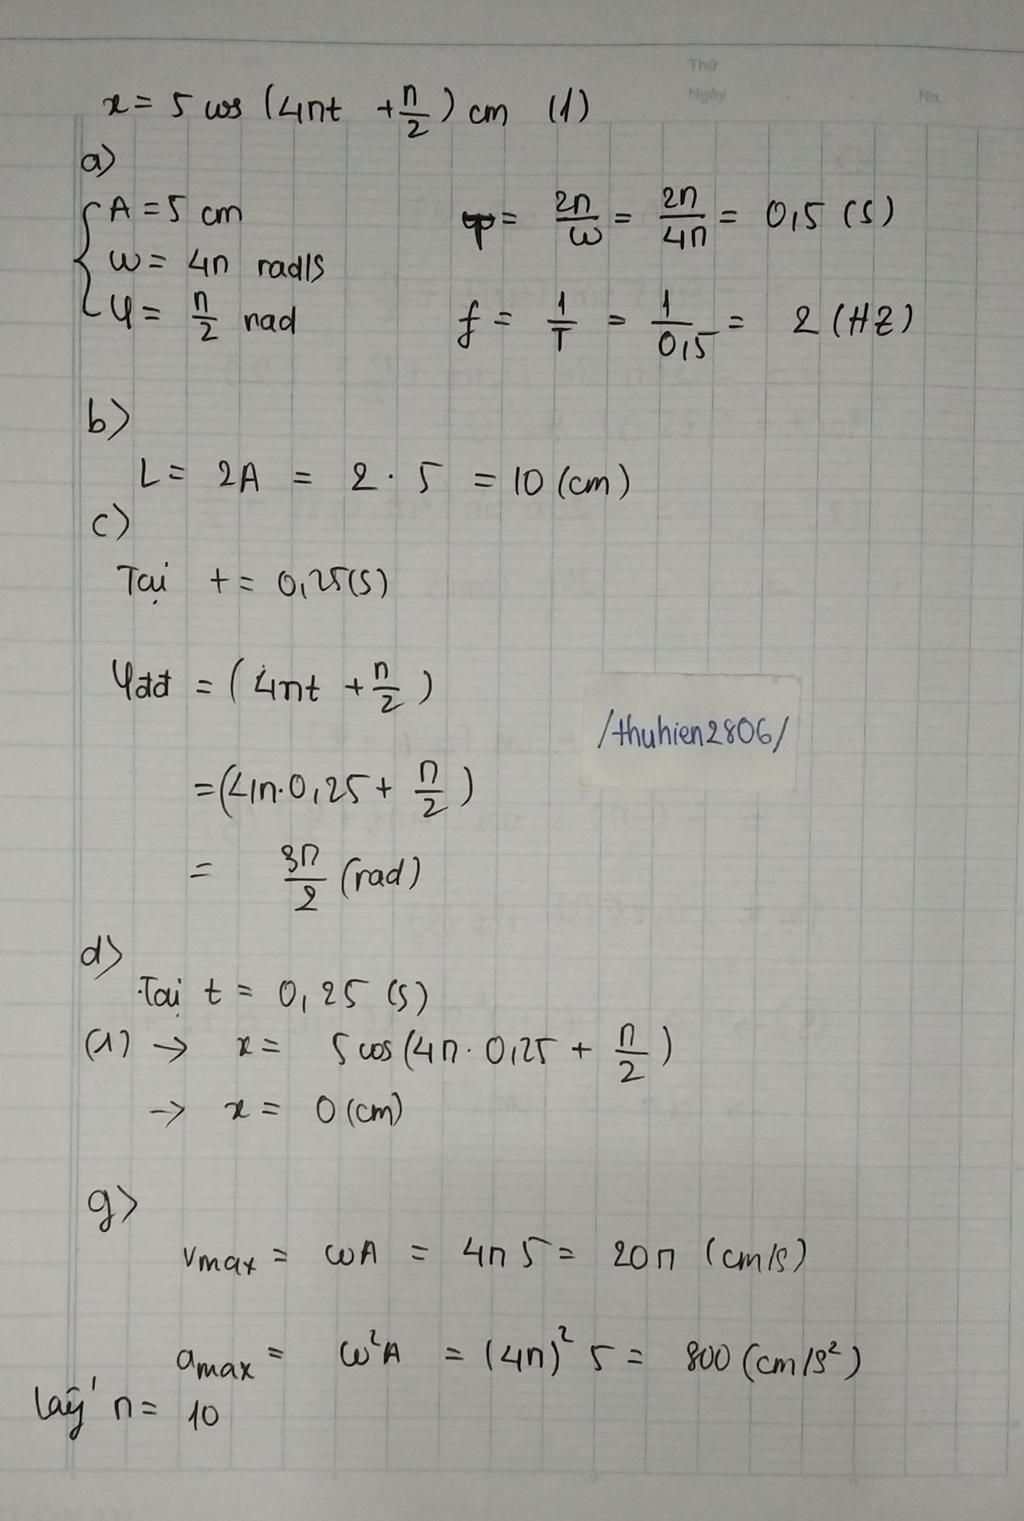 Thứ
Ngày No.
x = 5 cos (4πt + π/2) cm (1)
a)
A = 5 cm
ω = 4π rad/s
φ = π/2 rad
T = 2π/ω = 2π/4π = 0,5 (s)
f = 1/T = 1/0,5 = 2 (HZ)
b)
L = 2A = 2 . 5 = 10 (cm)
c)
Tại t = 0,25(s)
φdđ = (4πt + π/2)
= (4π.0,25 + π/2)
= 3π/2 (rad)
/thuhien2806/
d)
Tại t = 0,25 (s)
(1) → x = 5 cos (4π. 0,25 + π/2)
→ x = 0 (cm)
g)
vmax = ωA = 4π 5 = 20π (cm/s)
amax = ω²A = (4π)² 5 = 800 (cm/s²)
lấy π = 10